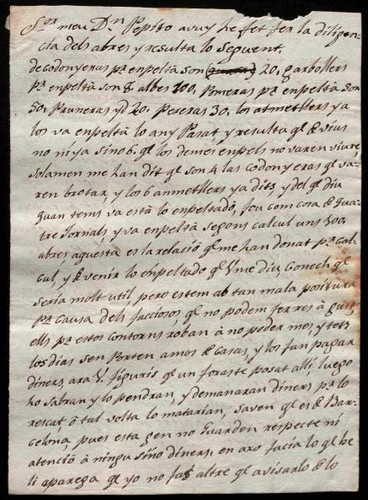 Sor meu Dn Pepito avuy he fet fer la diligen-
cia dels abres y resulta lo seguent.
de codonyeras pa enpeltá son 20. garbollers
pa enpeltá son de albes 200, Pomeras pa enpeltá son
50. Pruneras yd 20. Peseras 30. los atmetllers ya
los va enpeltá lo any Pasat, y resulta qe de vius
no ni ya sino 6. qe los demes enpels no varen viure,
solamen me han dit qe son 4 las codonyeras qe va-
ren brotar, y los 6 anmetllers ya dits, y del qe diu
quan tems va está lo enpeltadó, fou com cosa de qua-
tre Jornals, y va enpeltá segons calcul uns
abres aquesta es la relació qe me han donat pa cal-
cul, y de venir lo enpeltadó qe Vme diu, Conech qe
seria molt util pero estem ab tan mala positura
pa causa dels facciosos qe no podem fer res á gust
ells pa estos contorns roban á no poder mes, y tots
los dias sen Porten amos de Casas, y los fan pagar
diners, ara V. figuris qe un foraste posat allí luego
ho sabran y lo pendran, y demanaran diners pa lo
rescat, ó tal volta lo matarian, saven qe es de Bar-
celona, pues esta gen no Guarden respecte ni
atenció á ningú sinó diners, en axo facia lo qe be
li aparega qe yo no fas altre qe avisarlo de lo